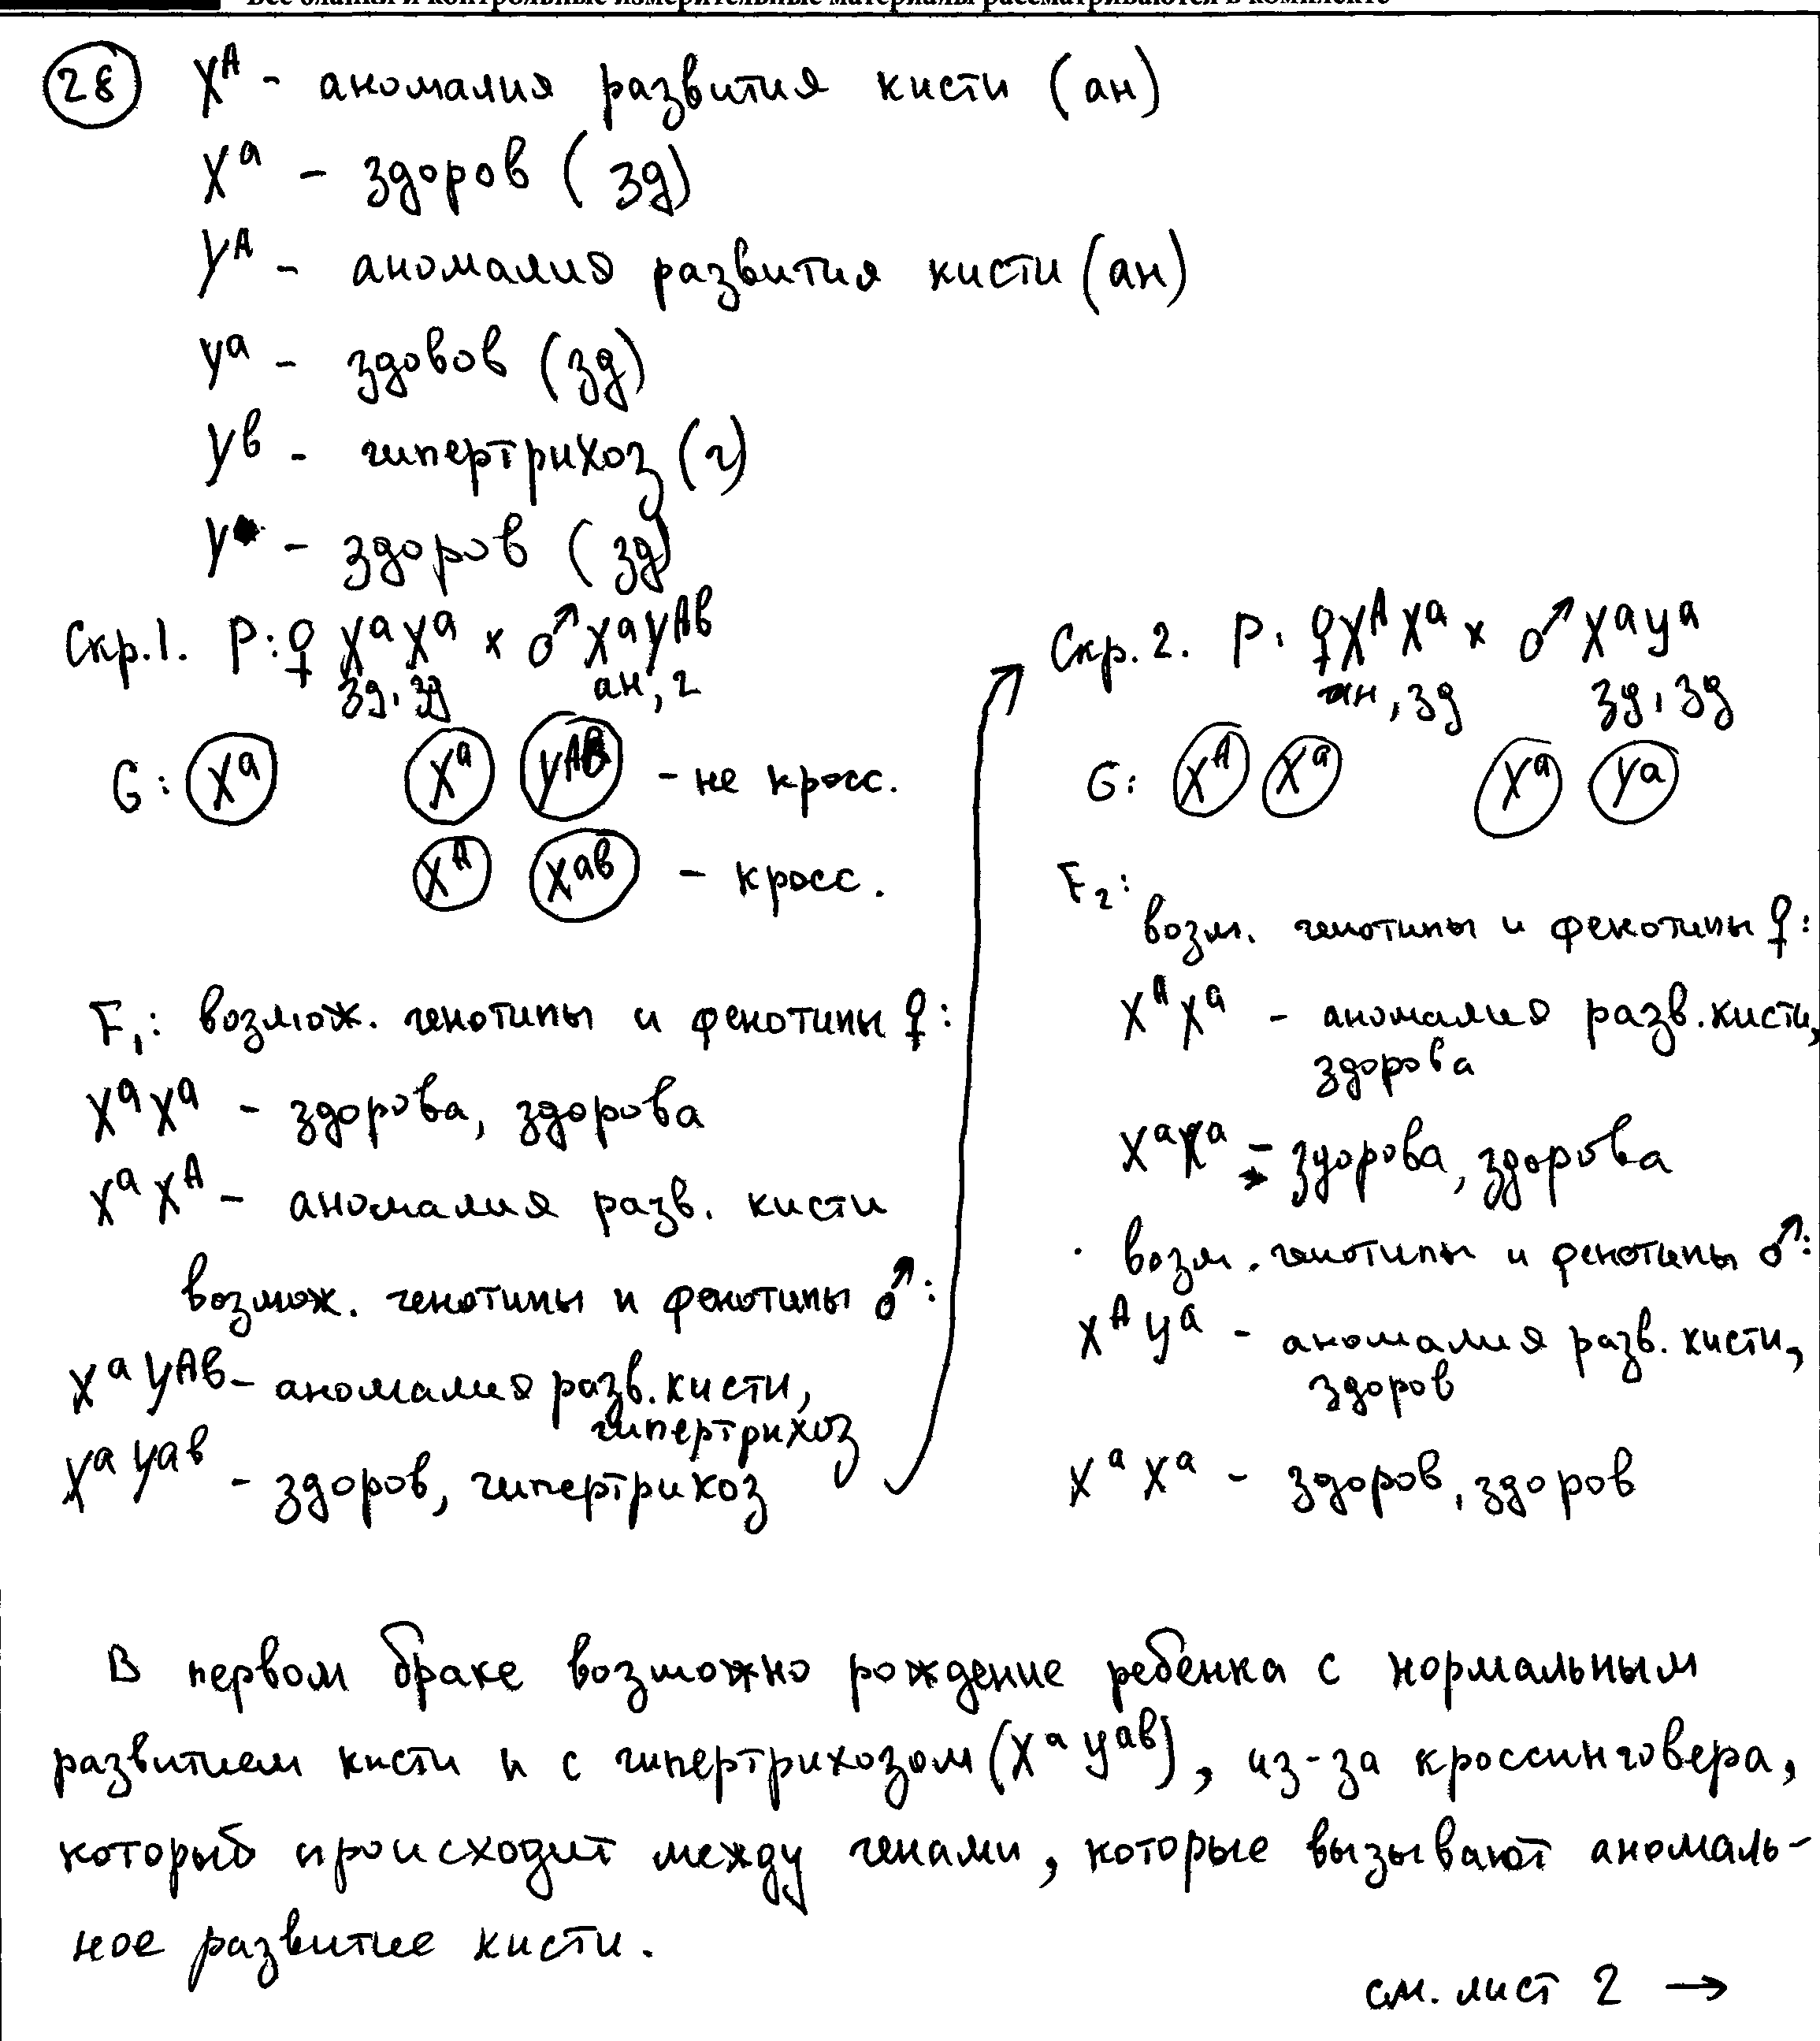 Все бланки и контрольные измерительные материалы рассматриваются в комплекте
28 X^A - аномалия развития кисти (ан)
X^a - здоров (зд)
Y^A - аномалия развития кисти (ан)
Y^a - здовов (зд)
Y^в - гипертрихоз (г)
Y - здоров (зд)
Скр.1. P: ♀ X^a X^a × ♂ X^a Y^Aв
зд, зд ан, г
G: X^a X^a Y^AB - не кросс.
X^A X^aв - кросс.
F1: возмож. генотипы и фенотипы ♀:
X^a X^a - здорова, здорова
X^a X^A - аномалия разв. кисти
возмож. генотипы и фенотипы ♂:
X^a Y^Aв - аномалия разв. кисти,
гипертрихоз
X^a Y^aв - здоров, гипертрихоз
Скр. 2. P: ♀ X^A X^a × ♂ X^a Y^a
ан, зд зд, зд
G: X^A X^a X^a Y^a
F2:
возм. генотипы и фенотипы ♀:
X^A X^a - аномалия разв. кисти,
здорова
X^a X^a - здорова, здорова
возм. генотипы и фенотипы ♂:
X^A Y^a - аномалия разв. кисти,
здоров
X^a X^a - здоров, здоров
В первом браке возможно рождение ребенка с нормальным
развитием кисти и с гипертрихозом (X^a Y^aв), из-за кроссинговера,
который происходит между генами, которые вызывают аномаль-
ное развитие кисти.
см. лист 2 →